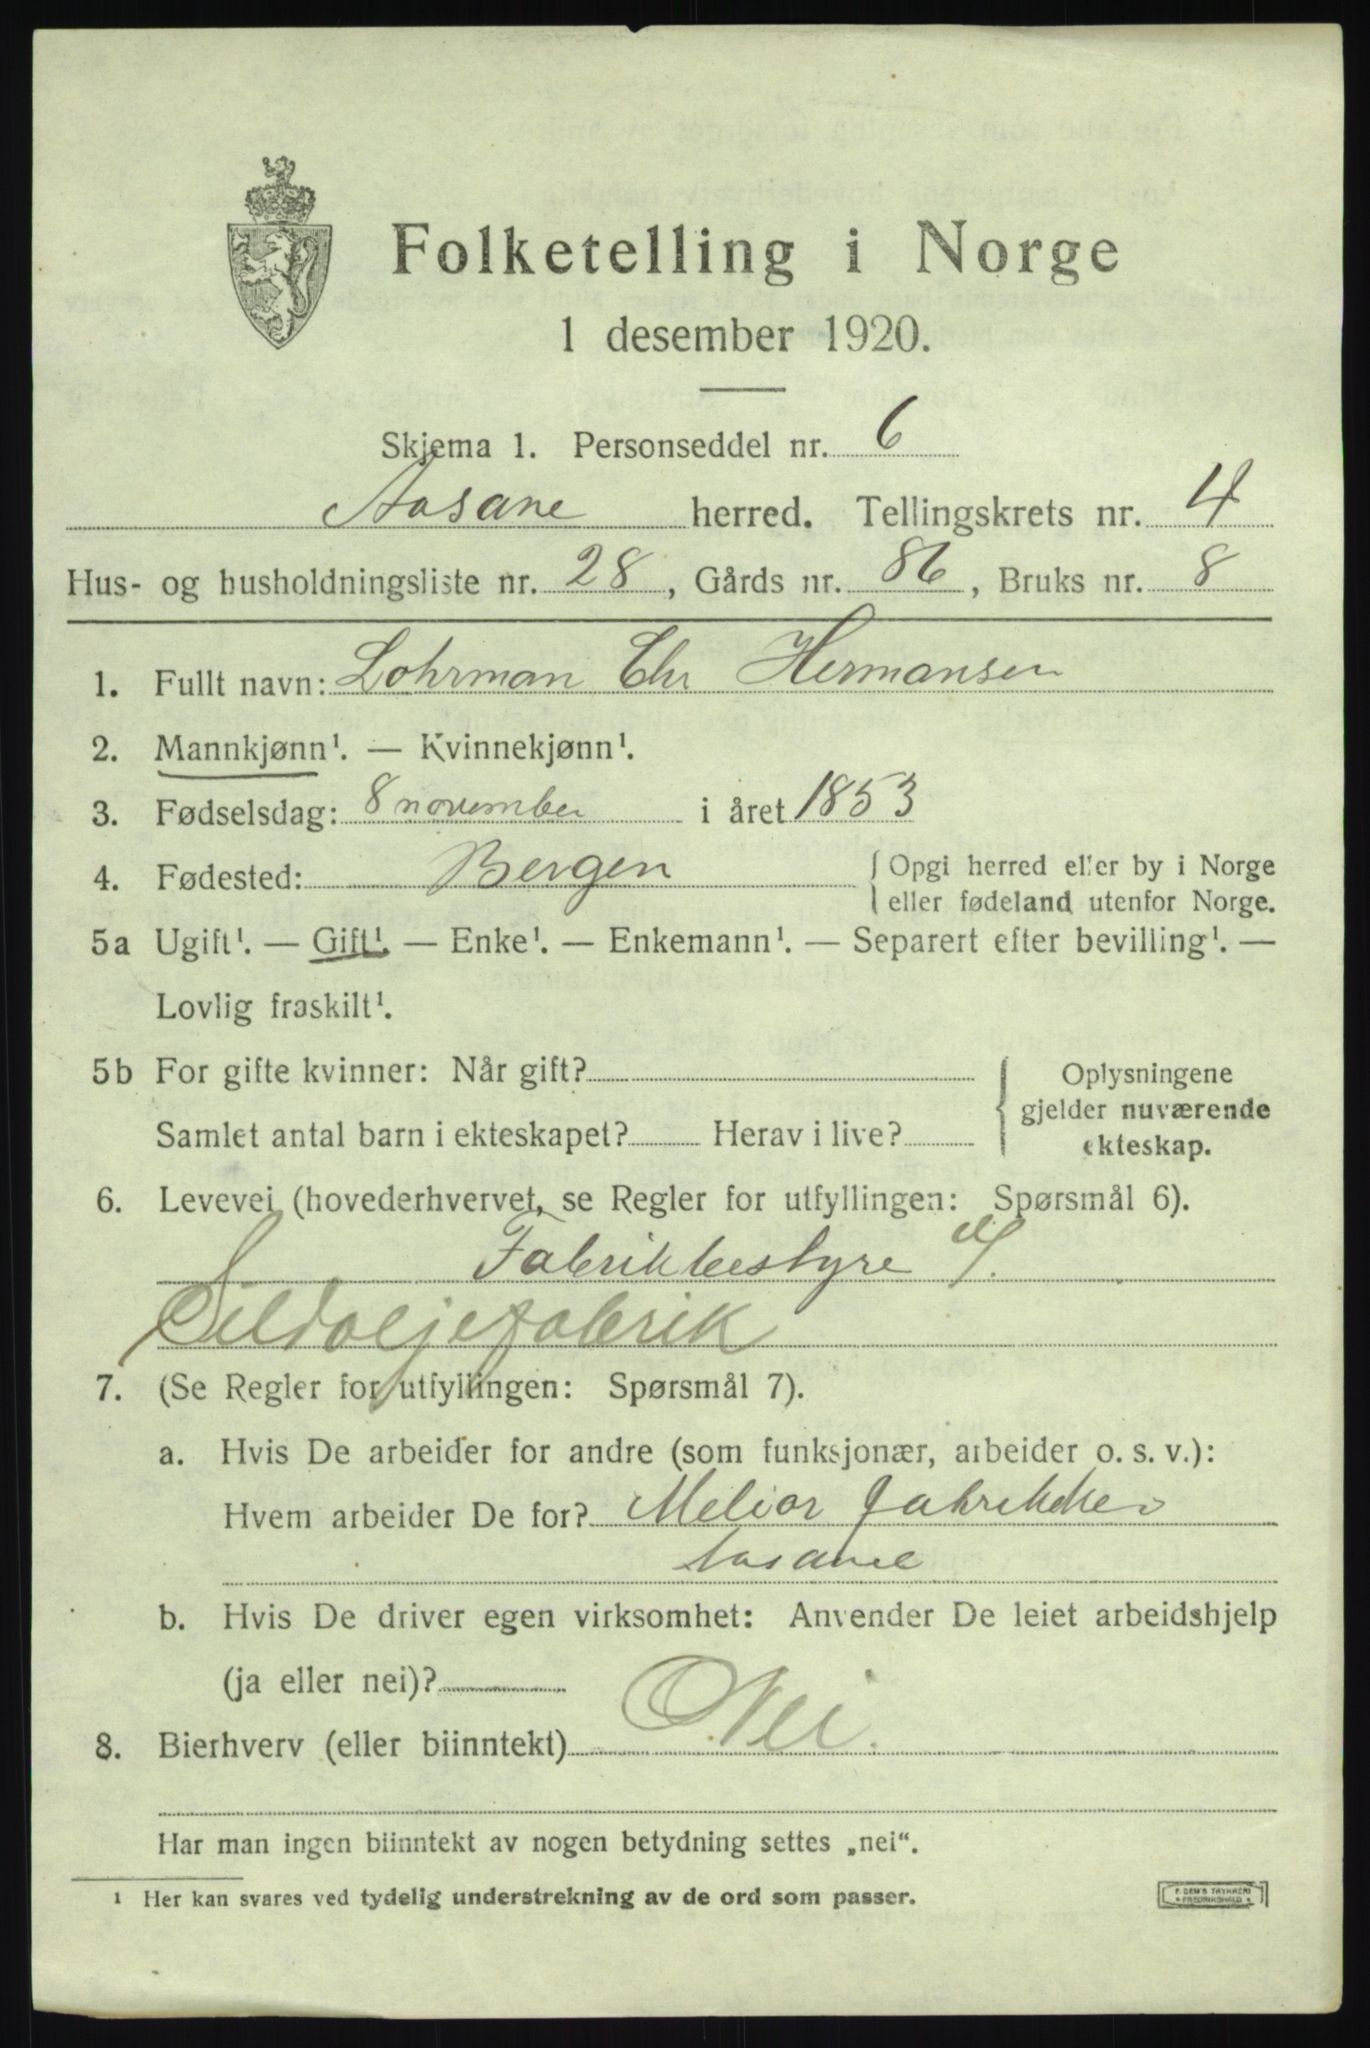 Folketelling i Norge
1 desember 1920.
Skjema 1. Personseddel nr. 6
Aasane herred. Tellingskrets nr. 4
Hus- og husholdningsliste nr. 28, Gårds nr. 86, Bruks nr. 8
1. Fullt navn: Lohrman Chr Hermansen
2. Mannkjønn¹. — Kvinnekjønn¹.
3. Fødselsdag: 8 november i året 1853
4. Fødested: Bergen { Opgi herred eller by i Norge
eller fødeland utenfor Norge.
5a Ugift¹. — Gift¹. — Enke¹. — Enkemann¹. — Separert efter bevilling¹. —
Lovlig fraskilt¹.
5b For gifte kvinner: Når gift?
Samlet antal barn i ekteskapet? Herav i live?
{ Oplysningene
gjelder nuværende
ekteskap.
6. Levevei (hovederhvervet, se Regler for utfyllingen: Spørsmål 6).
Fabrikbestyre
Sildoljefabrik
7. (Se Regler for utfyllingen: Spørsmål 7).
a. Hvis De arbeider for andre (som funksjonær, arbeider o. s. v.):
Hvem arbeider De for? Melior Fabrikker
Aasane
b. Hvis De driver egen virksomhet: Anvender De leiet arbeidshjelp
(ja eller nei)?
8. Bierhverv (eller biinntekt) Nei.
Har man ingen biinntekt av nogen betydning settes „nei“.
¹ Her kan svares ved tydelig understrekning av de ord som passer.
F. DEM'S TRYKKERI
FREDRIKSHALD